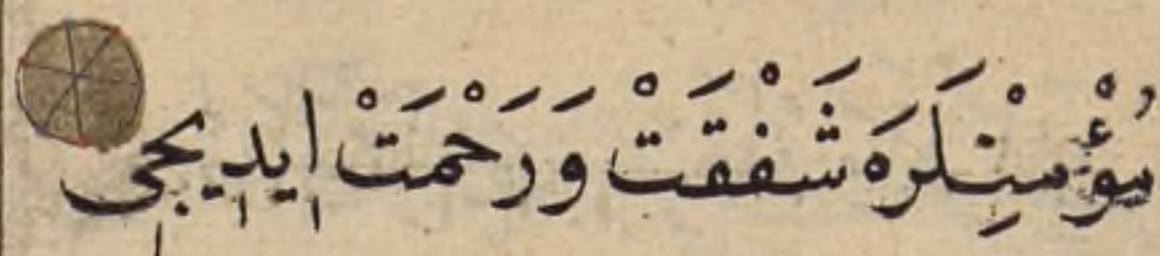 مُؤْمِنْلَرَه شَفْقَتْ وَرَحْمَتْ ایدیجی